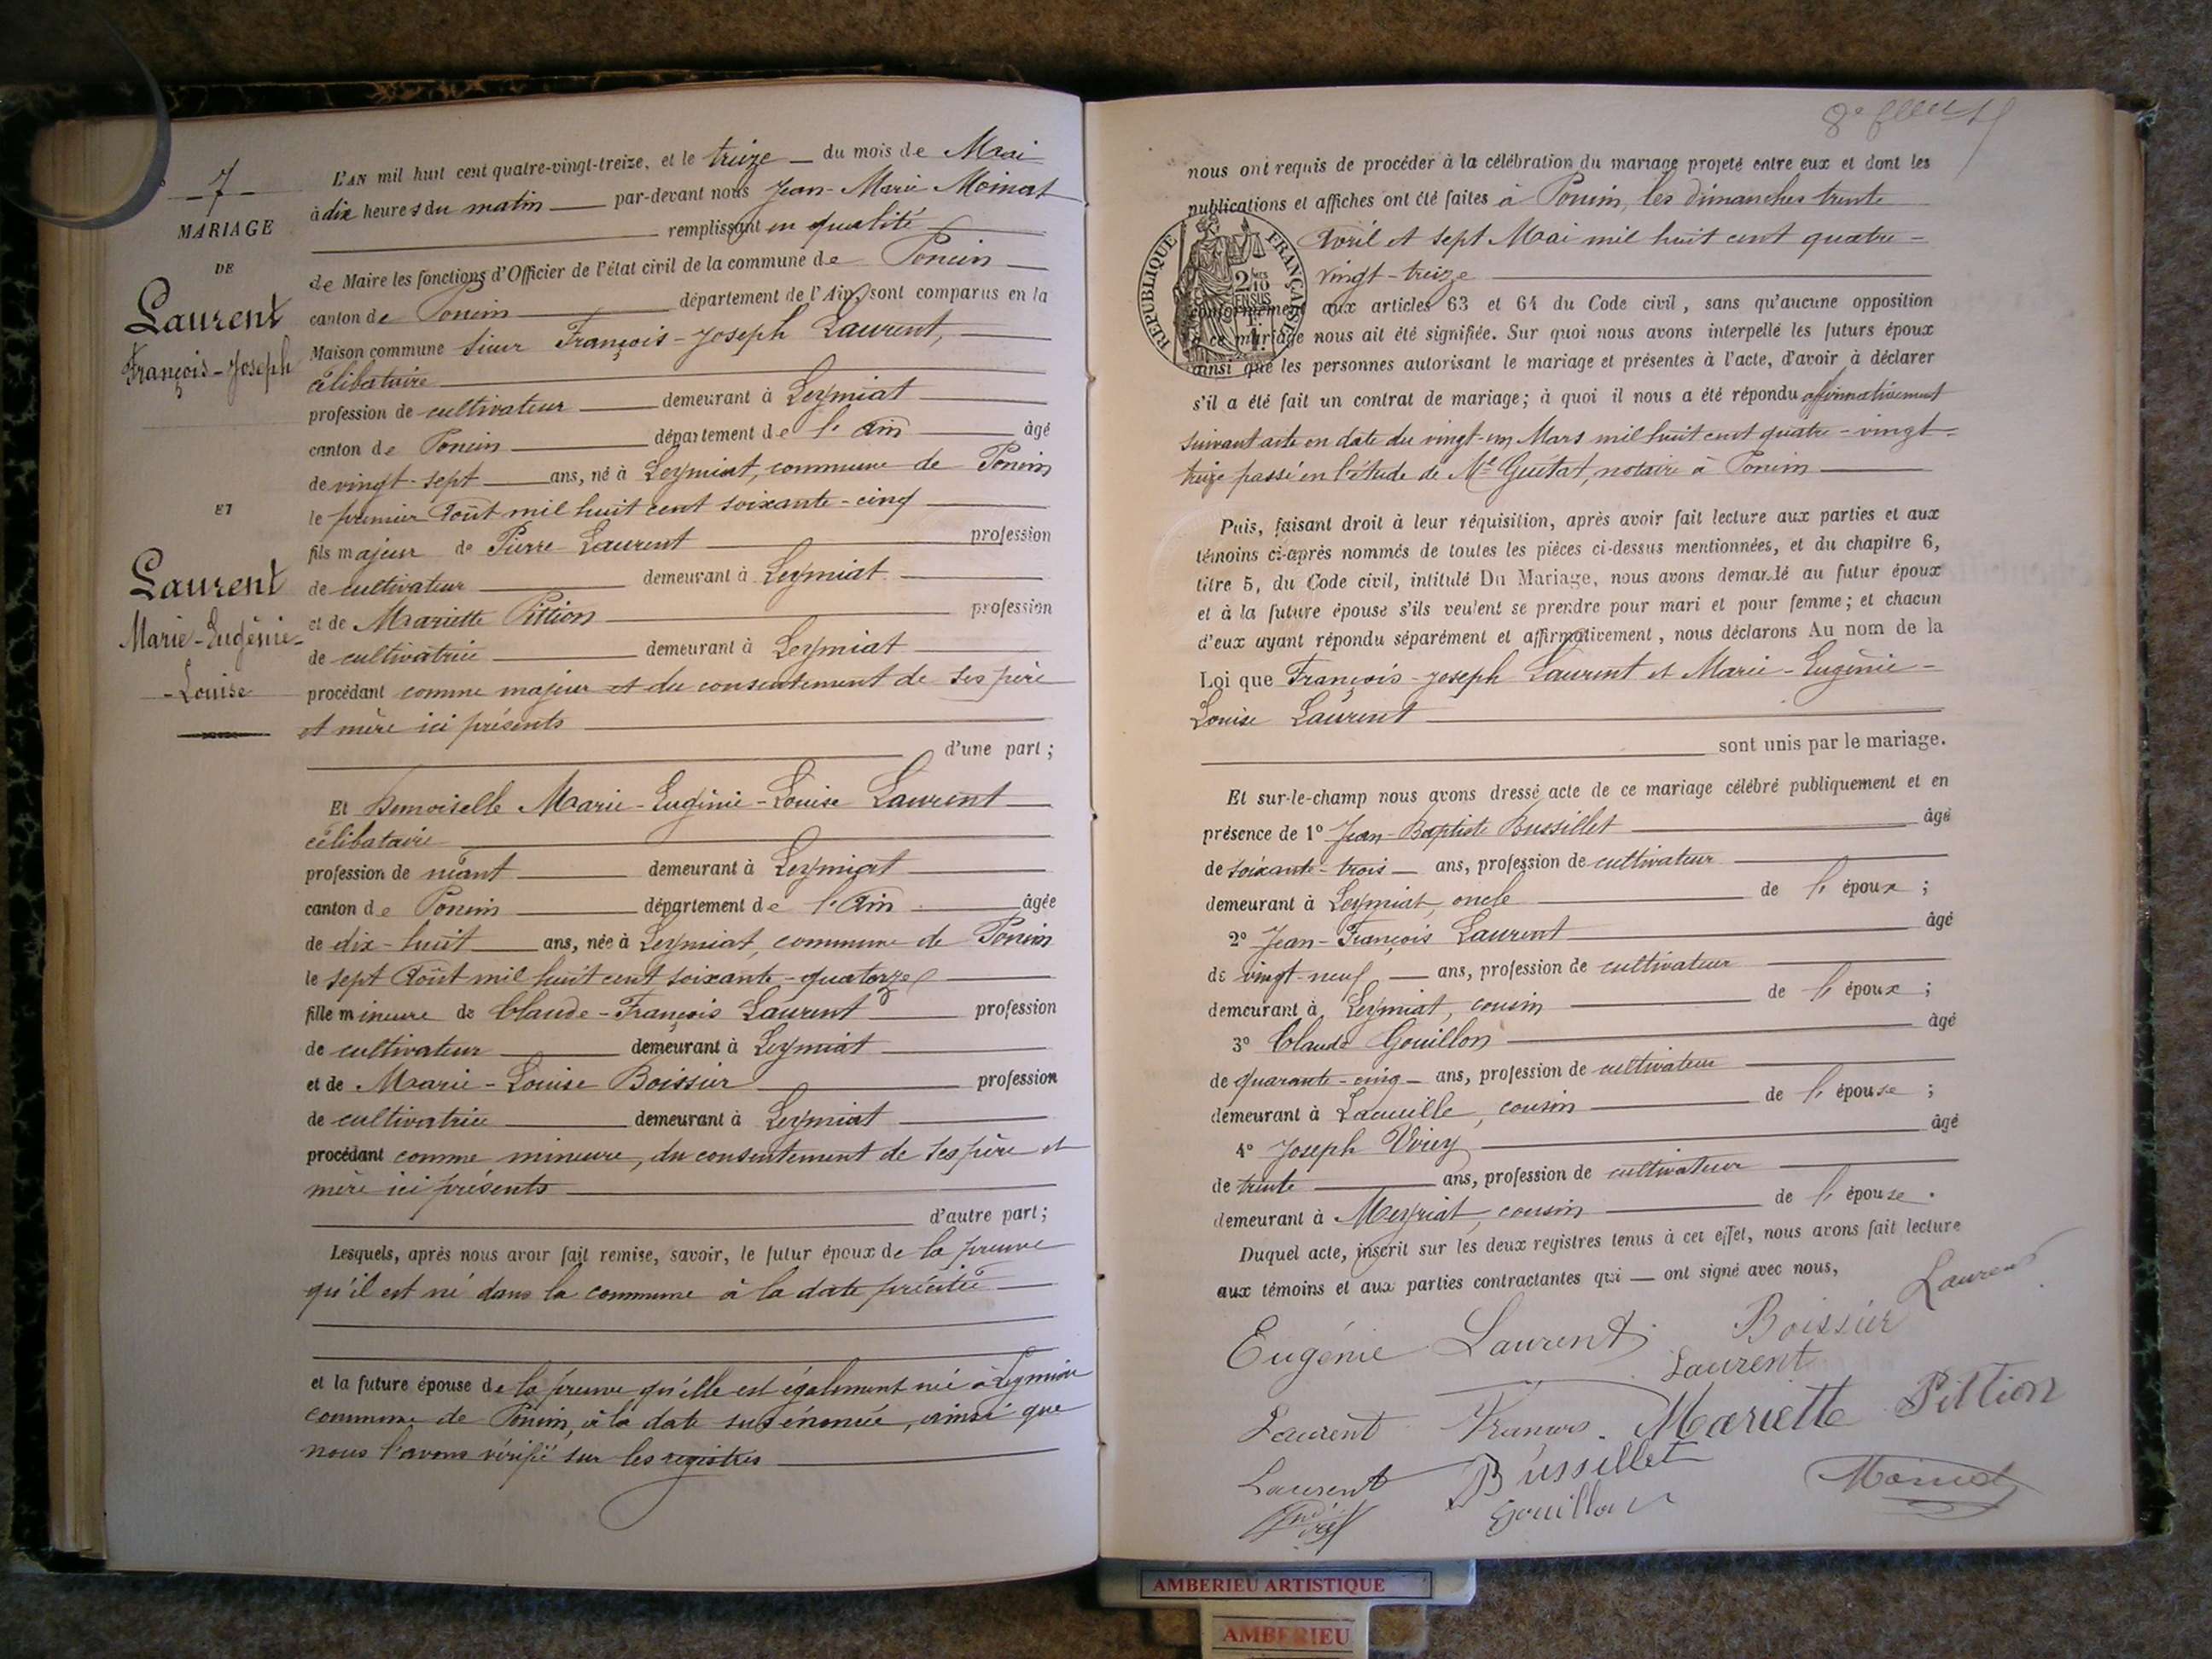 7
MARIAGE
DE
Laurent
François-Joseph
ET
Laurent
Marie-Eugénie-
-Louise
L'AN mil huit cent quatre-vingt-treize, et le treize du mois de Mai
à dix heures du matin par-devant nous Jean-Marie Moinat
remplissant en qualité
de Maire les fonctions d'Officier de l'état civil de la commune de Poncin
canton de Poncin département de l'Ain, sont comparus en la
Maison commune Sieur François-Joseph Laurent,
célibataire
profession de cultivateur demeurant à Leymiat
canton de Poncin département de l'Ain âgé
de vingt-sept ans, né à Leymiat, commune de Poncin
le premier Août mil huit cent soixante-cinq
fils majeur de Pierre Laurent profession
de cultivateur demeurant à Leymiat
et de Mariette Pittion profession
de cultivatrice demeurant à Leymiat
procédant comme majeur et du consentement de ses père
et mère ici présents
d'une part ;
Et Demoiselle Marie-Eugénie-Louise Laurent
célibataire
profession de néant demeurant à Leymiat
canton de Poncin département de l'Ain âgée
de dix-huit ans, née à Leymiat, commune de Poncin
le sept Août mil huit cent soixante-quatorze
fille mineure de Claude-François Laurent profession
de cultivateur demeurant à Leymiat
et de Marie-Louise Boissier profession
de cultivatrice demeurant à Leymiat
procédant comme mineure, du consentement de ses père et
mère ici présents
d'autre part ;
Lesquels, après nous avoir fait remise, savoir, le futur époux de la preuve
qu'il est né dans la commune à la date précitée
et la future épouse de la preuve qu'elle est également née à Leymiat
commune de Poncin, à la date susénoncée, ainsi que
nous l'avons vérifié sur les registres
8e
nous ont requis de procéder à la célébration du mariage projeté entre eux et dont les
publications et affiches ont été faites à Poncin, les dimanches trente
Avril et sept Mai mil huit cent quatre-
vingt-treize
REPUBLIQUE FRANÇAISE
2/10
EN SUS
conformément aux articles 63 et 64 du Code civil, sans qu'aucune opposition
à ce mariage nous ait été signifiée. Sur quoi nous avons interpellé les futurs époux
ainsi que les personnes autorisant le mariage et présentes à l'acte, d'avoir à déclarer
s'il a été fait un contrat de mariage ; à quoi il nous a été répondu affirmativement
suivant acte en date du vingt-un Mars mil huit cent quatre-vingt-
treize passé en l'étude de Me Guétat, notaire à Poncin
Puis, faisant droit à leur réquisition, après avoir fait lecture aux parties et aux
témoins ci-après nommés de toutes les pièces ci-dessus mentionnées, et du chapitre 6,
titre 5, du Code civil, intitulé Du Mariage, nous avons demandé au futur époux
et à la future épouse s'ils veulent se prendre pour mari et pour femme ; et chacun
d'eux ayant répondu séparément et affirmativement, nous déclarons Au nom de la
Loi que François-Joseph Laurent et Marie-Eugénie-
Louise Laurent
sont unis par le mariage.
Et sur-le-champ nous avons dressé acte de ce mariage célébré publiquement et en
présence de 1° Jean-Baptiste Bussillet âgé
de soixante-trois ans, profession de cultivateur
demeurant à Leymiat, oncle de l'époux ;
2° Jean-François Laurent âgé
de vingt-neuf ans, profession de cultivateur
demeurant à Leymiat, cousin de l'époux ;
3° Claude Gouillon âgé
de quarante-cinq ans, profession de cultivateur
demeurant à, cousin de l'épouse ;
4° Joseph âgé
de trente ans, profession de cultivateur
demeurant à Meyriat, cousin de l'épouse.
Duquel acte, inscrit sur les deux registres tenus à cet effet, nous avons fait lecture
aux témoins et aux parties contractantes qui ont signé avec nous,
Laurent
Eugénie Laurent Boissier
Laurent
Laurent François. Mariette Pittion
Laurent Bussillet Moinat
Gouillon
AMBERIEU ARTISTIQUE
AMBERIEU